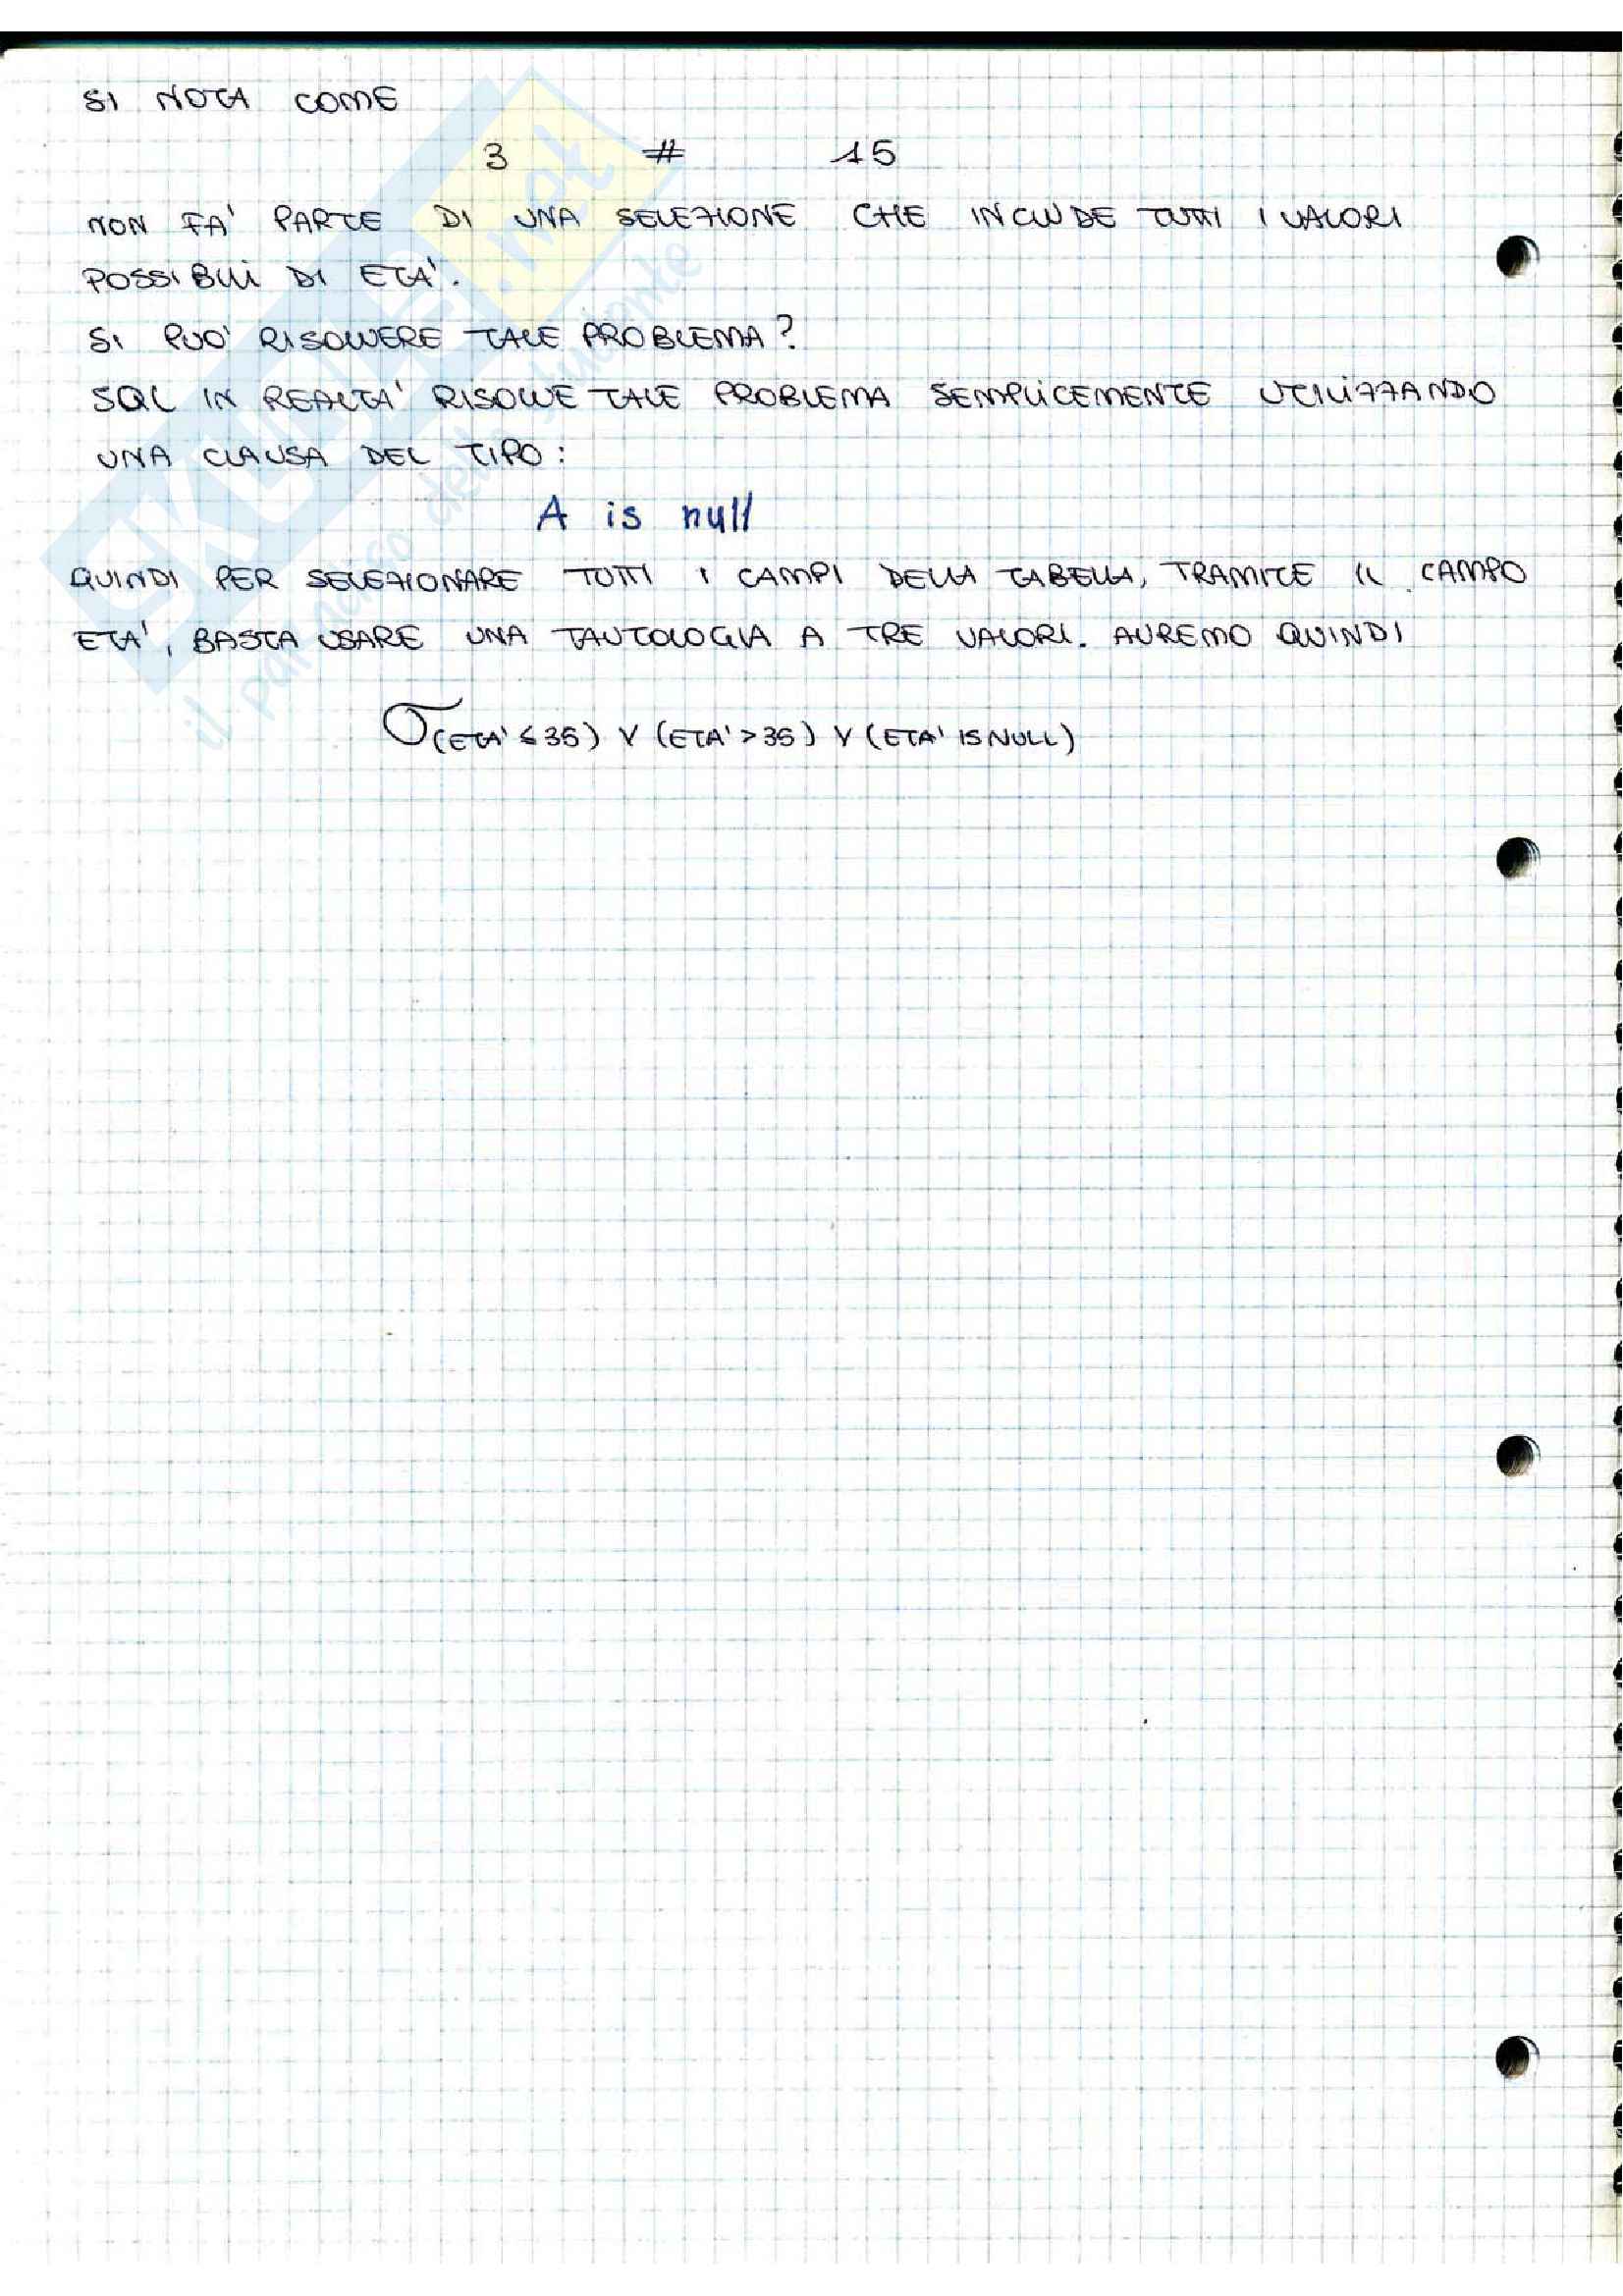 SI NOTA COME
3 # 15
NON FA' PARTE DI UNA SELEZIONE CHE INCLUDE TUTTI I VALORI
POSSIBILI DI ETA'.
SI PUO' RISOLVERE TALE PROBLEMA?
SQL IN REALTA' RISOLVE TALE PROBLEMA SEMPLICEMENTE UTILIZZANDO
UNA CLAUSA DEL TIPO:
A is null
QUINDI PER SELEZIONARE TUTTI I CAMPI DELLA TABELLA, TRAMITE IL CAMPO
ETA', BASTA USARE UNA TAUTOLOGIA A TRE VALORI. AVREMO QUINDI
σ(ETA' ≤ 35) ∨ (ETA' > 35) ∨ (ETA' IS NULL)
SKUOLA.net
il paradiso dello studente